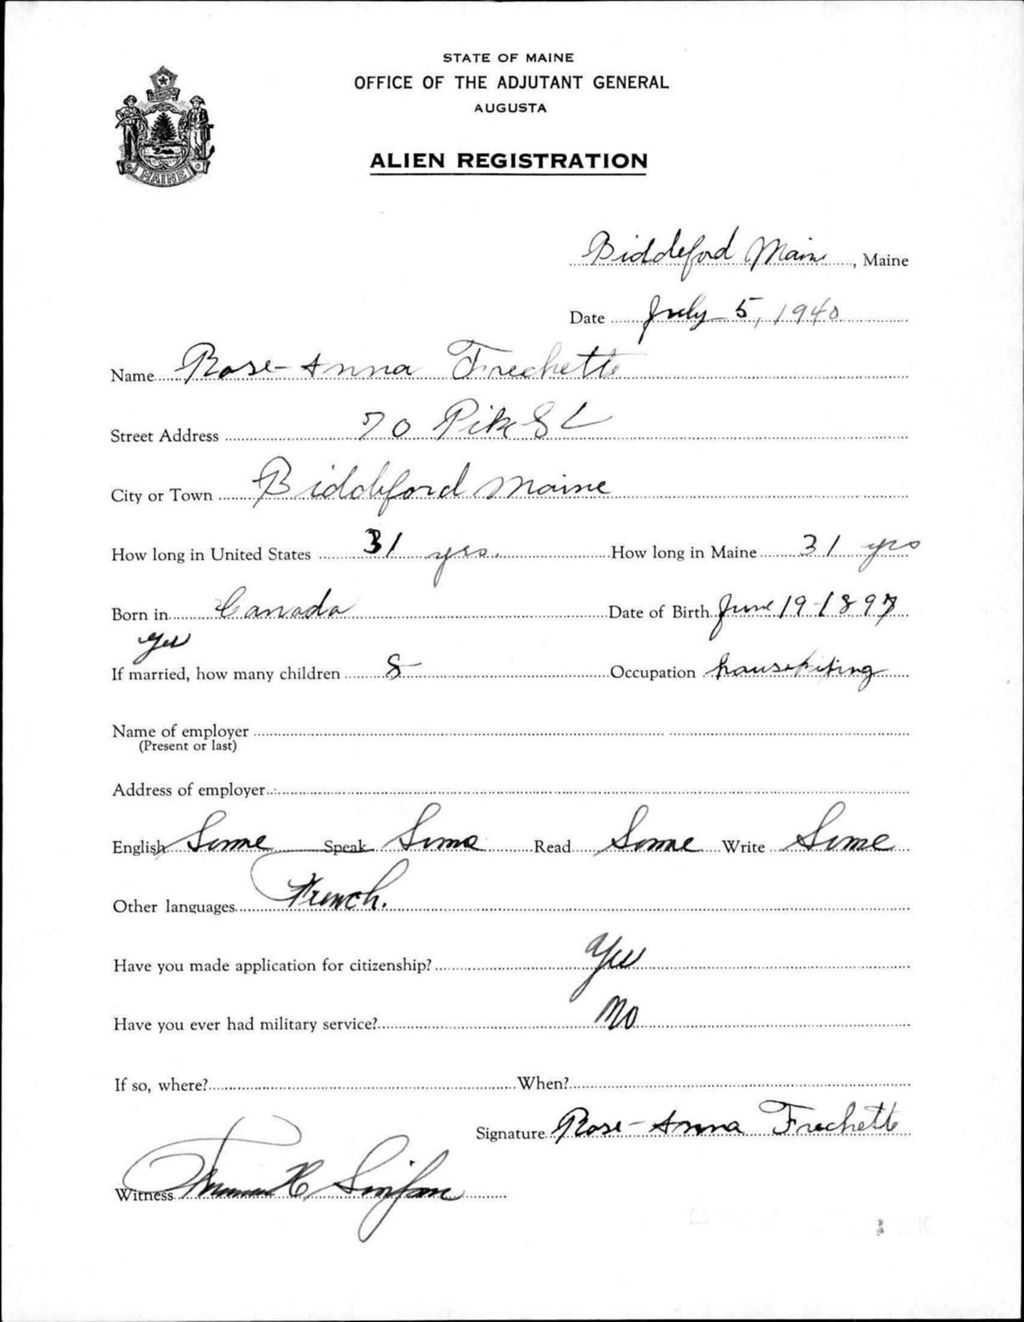 STATE OF MAINE
OFFICE OF THE ADJUTANT GENERAL
AUGUSTA
ALIEN REGISTRATION
MAINE
Biddeford Maine, Maine
Date July 5, 1940
Name Rose-Anna Frechette
Street Address 70 Pike St
City or Town Biddeford Maine
How long in United States 31 yrs. How long in Maine 31 yrs
Born in Canada Date of Birth June 19-1897
Yes
If married, how many children 8 Occupation
Name of employer
(Present or last)
Address of employer
English Some Speak Some Read Some Write Some
Other languages French.
Have you made application for citizenship? Yes
Have you ever had military service? No
If so, where? When?
Signature Rose-Anna Frechette
Witness